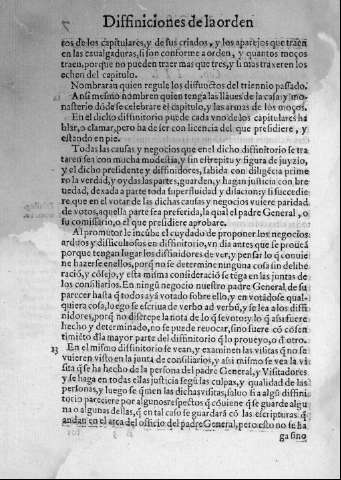 Diffiniciones de la orden
tos de los capitulares, y de sus criados, y los aparejos que traen
en las caualgaduras, si son conforme a orden, y quantos moços
traen, porque no pueden traer mas que tres, y si mas traxeren los
echen del capitulo.
Nombraran quien regule los diffuctos del triennio passado.
Ansi mesmo nombren quien tenga las llaues de la casa y mo-
nasterio dõde se celebrare el capitulo, y las armas de los moços.
En el dicho diffinitorio puede cada vno de los capitulares ha
blar, o clamar, pero ha de ser con licencia del que presidiere, y
estando en pie.
Todas las causas y negocios que en el dicho diffinitorio se tra-
taren sea con mucha modestia, y sin estrepitu y figura de juyzio,
y el dicho presidente y diffinidores, sabida con diligẽcia prime
ro la verdad, y oydas las partes, guarden, y hagan justicia con bre
uedad, dexada a parte toda superfluidad y dilacion; y si succedie
re que en el votar de las dichas causas y negocios vuiere paridad
de votos, aquella parte sea preferida, la qual el padre General, o
su comissario, o el que presidiere aprobare.
Al promutor le incũbe el cuydado de proponer los negocios
arduos y dificultosos en diffinitorio, vn dia antes que se prouea
porque tengan lugar los diffinidores de ver, y pensar lo q̃ conuie
ne hazerse en ellos, porq̃ no se determine ninguna cosa sin delibe
raciõ, y cõsejo, y esta misma consideraciõ se tẽga en las juntas de
los consiliarios. En ningũ negocio nuestro padre General, de su
parecer hasta q̃ todos ayã votado sobre ello, y en votãdose qual-
quiera cosa, luego se escriua de verbo ad verbũ, y se lea a los diffi
nidores, porq̃ no discrepe la nota de lo q̃ se voto; y lo q̃ assi fuere
hecho y determinado, no se puede reuocar, sino fuere cõ cõsen-
timiẽto d̃la mayor parte del diffinitorio q̃ lo proueyo, o d̃ otro.
13 En el mismo diffinitorio se vean, y examinen las visitas q̃ no se
vuieren visto en la junta de consiliarios, y assi mismo se vea la vi
sita q̃ se ha hecho de la persona del padre General, y Visitadores
y se haga en todas ellas justicia segũ las culpas, y qualidad de las
personas, y luego se q̃men las dichas visitas, saluo si a algũ diffini
torio pareciere por algunos respectos q̃ cõuiene q̃ se guarde algu
na o algunas dellas, q̃ en tal caso se guardarã cõ las escripturas q̃
andan en el arca del officio del padre General, pero esto no se ha
ga sino